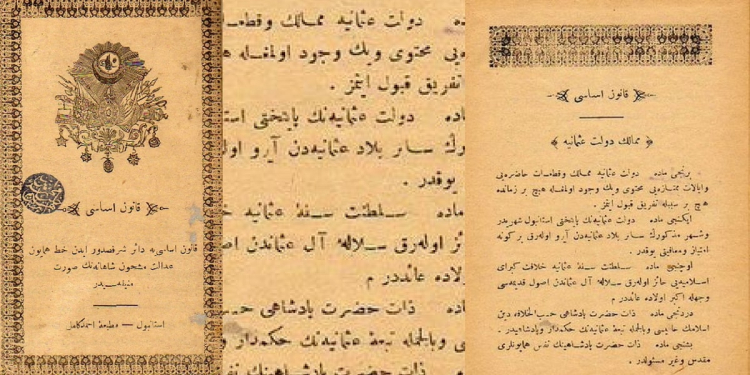 قانون اساسی
قانون اساسی‌یه دائر شرفصدور ایدن خط همایون
عدالت مشحون شاهانه‌نك صورت
منیفه‌سیدر
استانبول — مطبعهٔ احمد كامل
ماده دولت عثمانیه ممالك وقطعـ
محتوی ویك وجود اولمغله هـ
تفریق قبول ایتمز .
ماده دولت عثمانیه‌نك پایتختی استـ
سائر بلاد عثمانیه‌دن آیرو اولـ
یوقدر .
ماده سلطنت سنیهٔ عثمانیه خـ
حائز اوله‌رق سلالهٔ آل عثماندن اصـ
اولاده عائددر م
ماده ذات حضرت پادشاهی حسـ
وبالجمله تبعهٔ عثمانیه‌نك حكمدار و
ذات حضرت پادشاهینك نفس
قانون اساسی
﴿ ممالك دولت عثمانیه ﴾
برنجی ماده دولت عثمانیه ممالك وقطعات حاضره‌یی
وایالات ممتازه‌یی محتوی ویك وجود اولمغله هیچ بر زمانده
هیچ بر سببله تفریق قبول ایتمز .
ایكنجی ماده دولت عثمانیه‌نك پایتختی استانبول شهریدر
وشهر مذكورك سائر بلاد عثمانیه‌دن آیرو اوله‌رق بر كونه
امتیاز ومعافیتی یوقدر .
اوچنجی ماده سلطنت سنیهٔ عثمانیه خلافت كبرای
اسلامیه‌یی حائز اوله‌رق سلالهٔ آل عثماندن اصول قدیمه‌سی
وجهله اكبر اولاده عائددر م
دردنجی ماده ذات حضرت پادشاهی حسب الخلافه دین
اسلامك حامیسی وبالجمله تبعهٔ عثمانیه‌نك حكمدار وپادشاهیدر .
بشنجی ماده ذات حضرت پادشاهینك نفس همایونلری
مقدس وغیر مسئولدر .